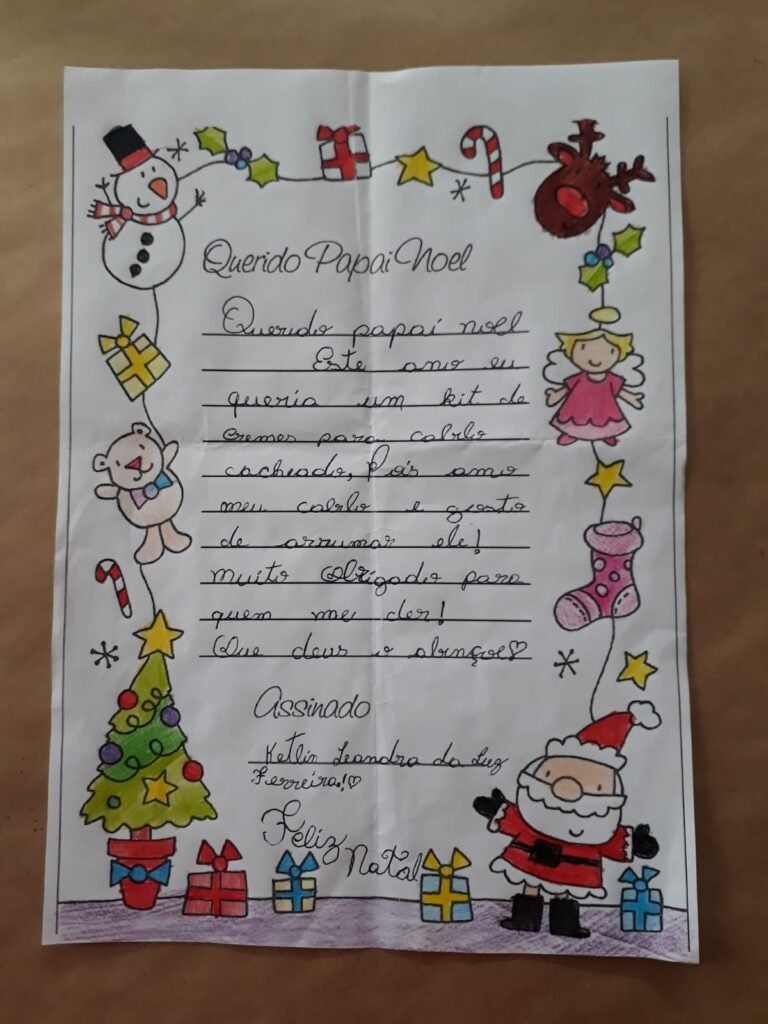 Querido Papai Noel
Querido papai noel
Este ano eu
queria um kit de
cremes para cabelo
cacheado, Pois amo
meu cabelo e gosto
de arrumar ele!
muito obrigado para
quem me der!
Que deus o abençoe♡
Assinado
Ketlin Leandra da Luz
Ferreira!♡
Feliz
Natal